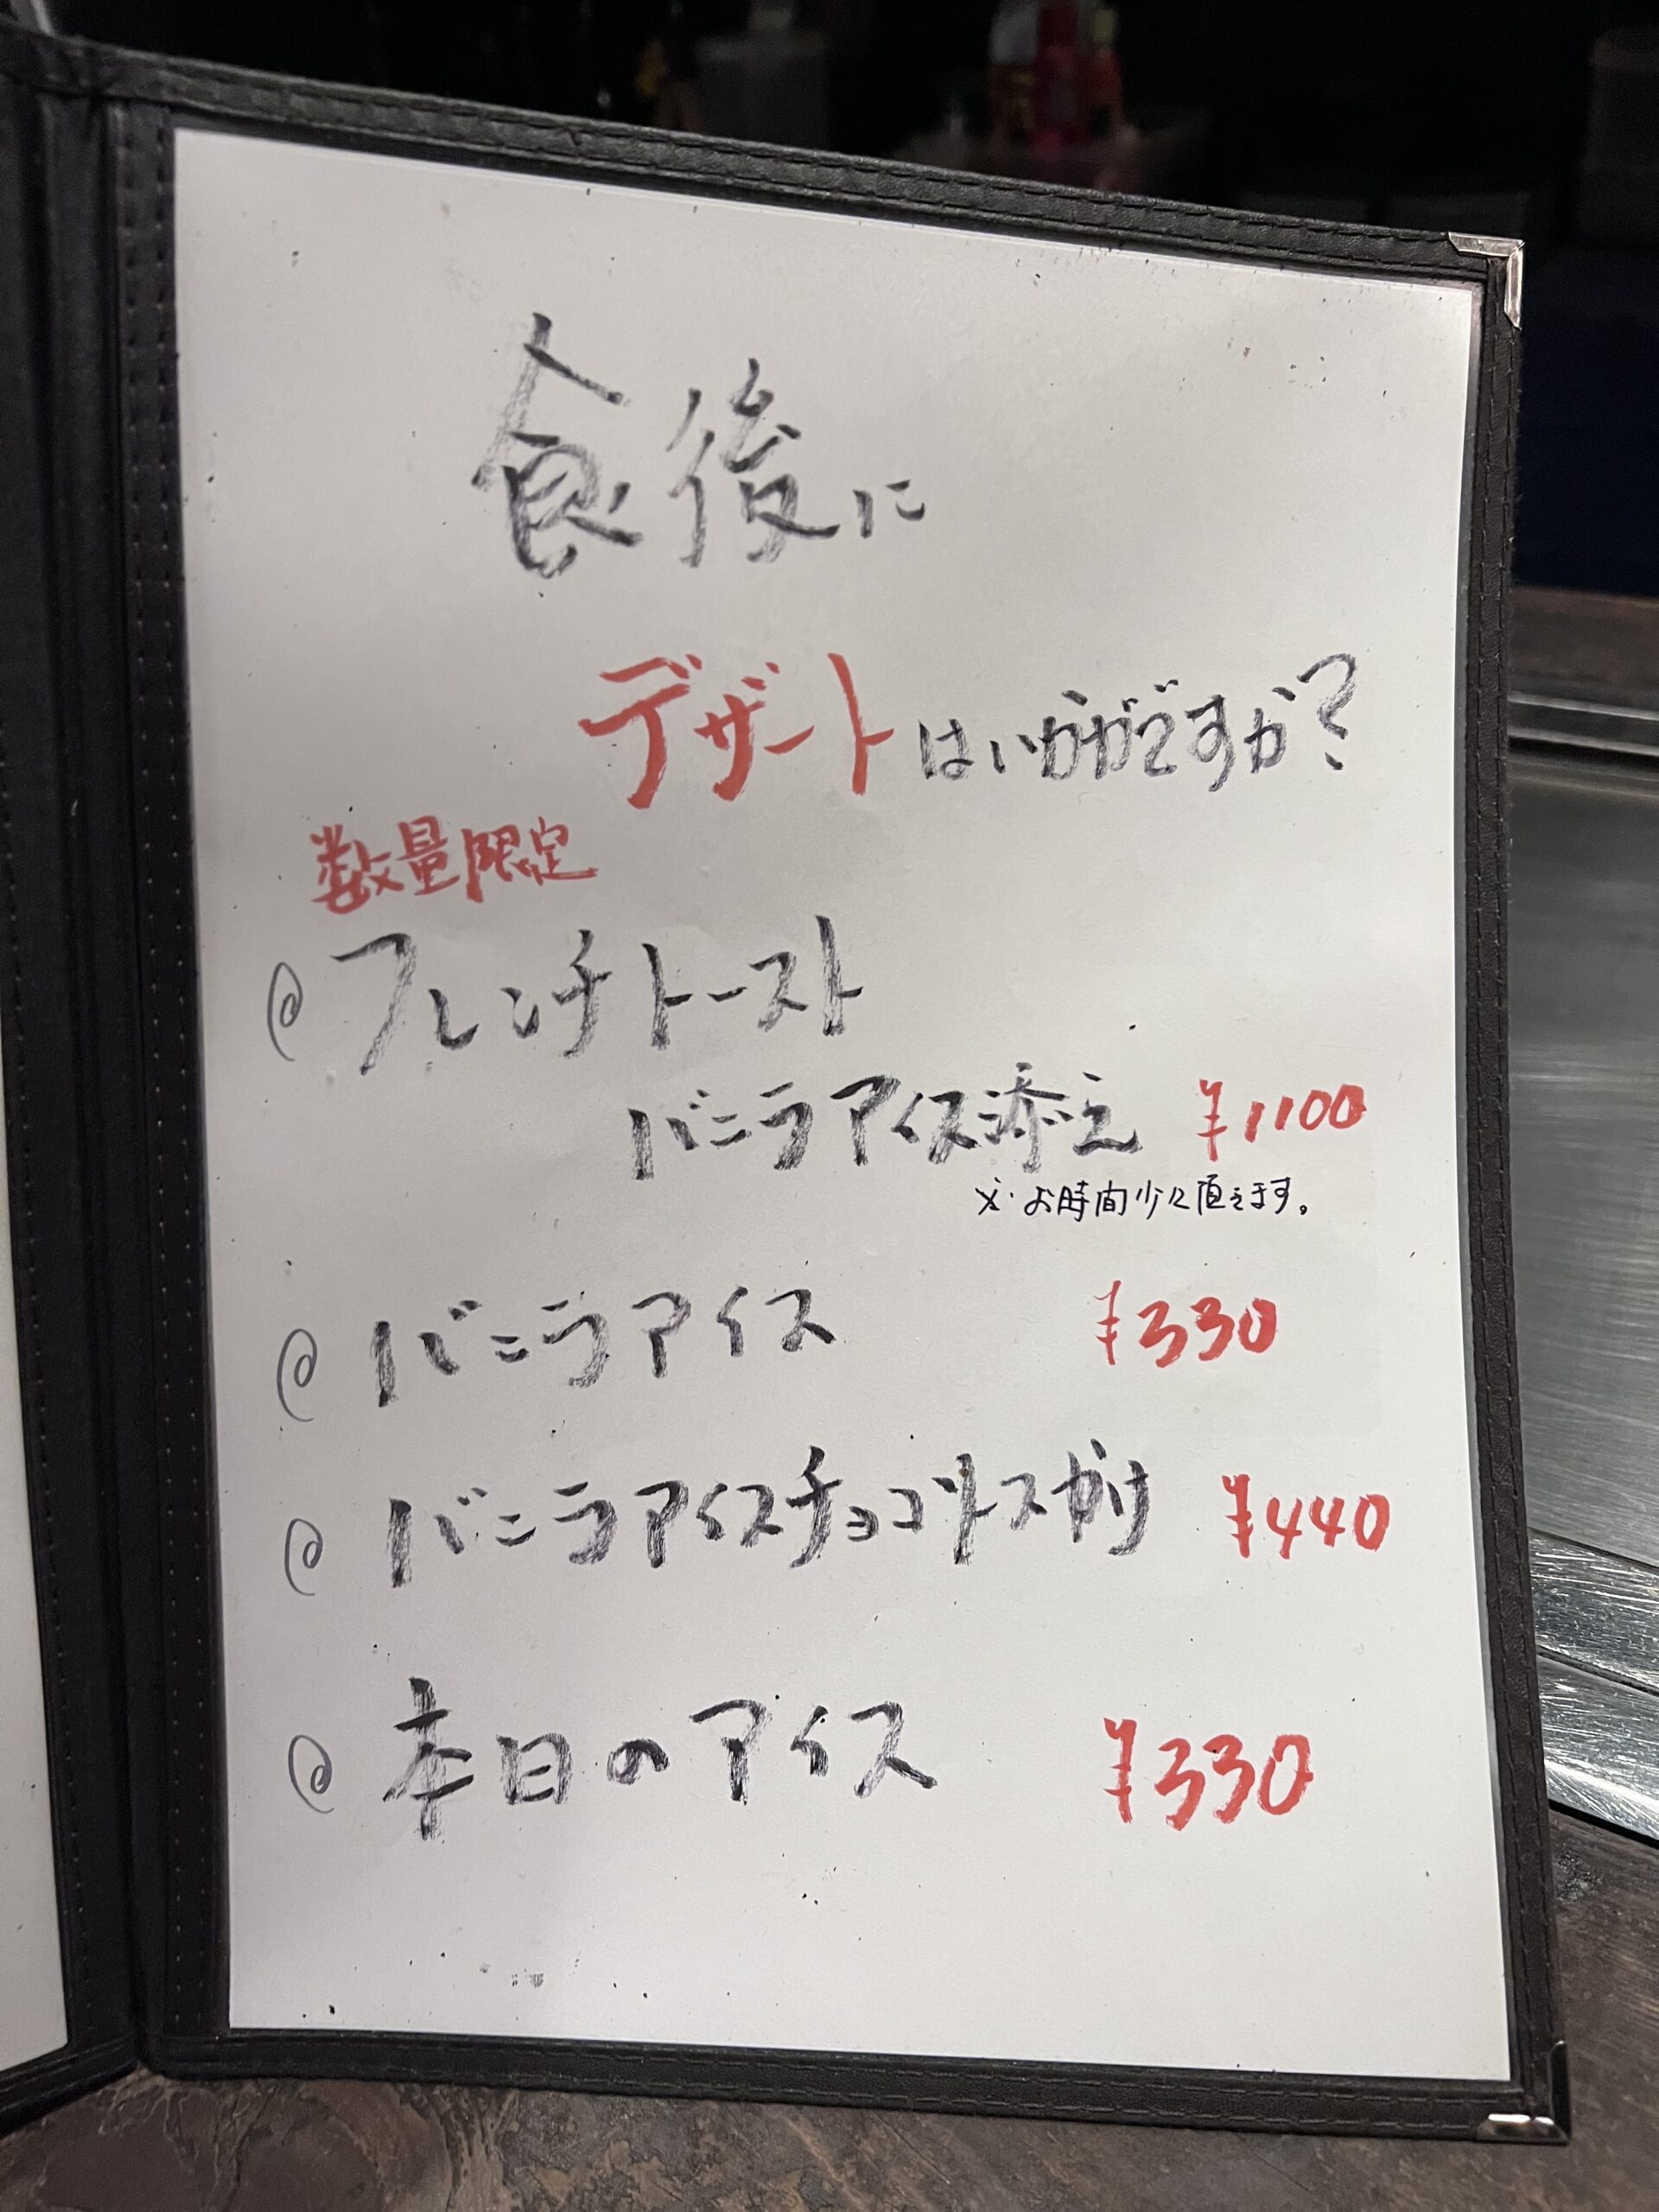 食後に
デザートはいかがですか?
数量限定
@ フレンチトースト
バニラアイス添え ¥1100
※お時間少々頂きます。
@ バニラアイス ¥330
@ バニラアイスチョコソースがけ ¥440
@ 本日のアイス ¥330